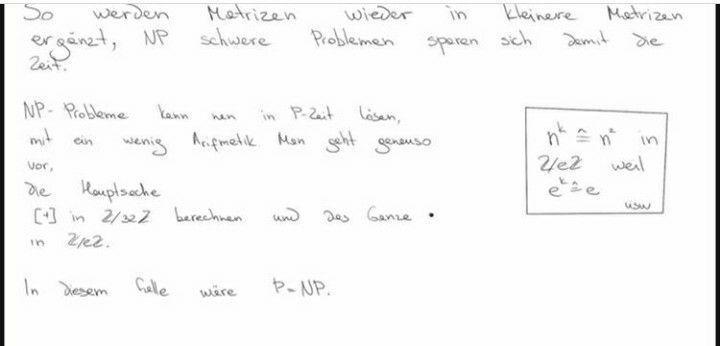 So werden Matrizen wieder in kleinere Matrizen
ergänzt, NP schwere Problemen sparen sich damit die
Zeit.
NP-Probleme kann nan in P-Zeit lösen,
mit ein wenig Arifmetik. Man geht genauso
vor,
die Hauptsache
[1] in Z/32Z berechnen und das Ganze •
in Z/eZ.
In diesem Falle wäre P=NP.
n^k ≙ n^z in
Z/eZ weil
e^k ≙ e
usw